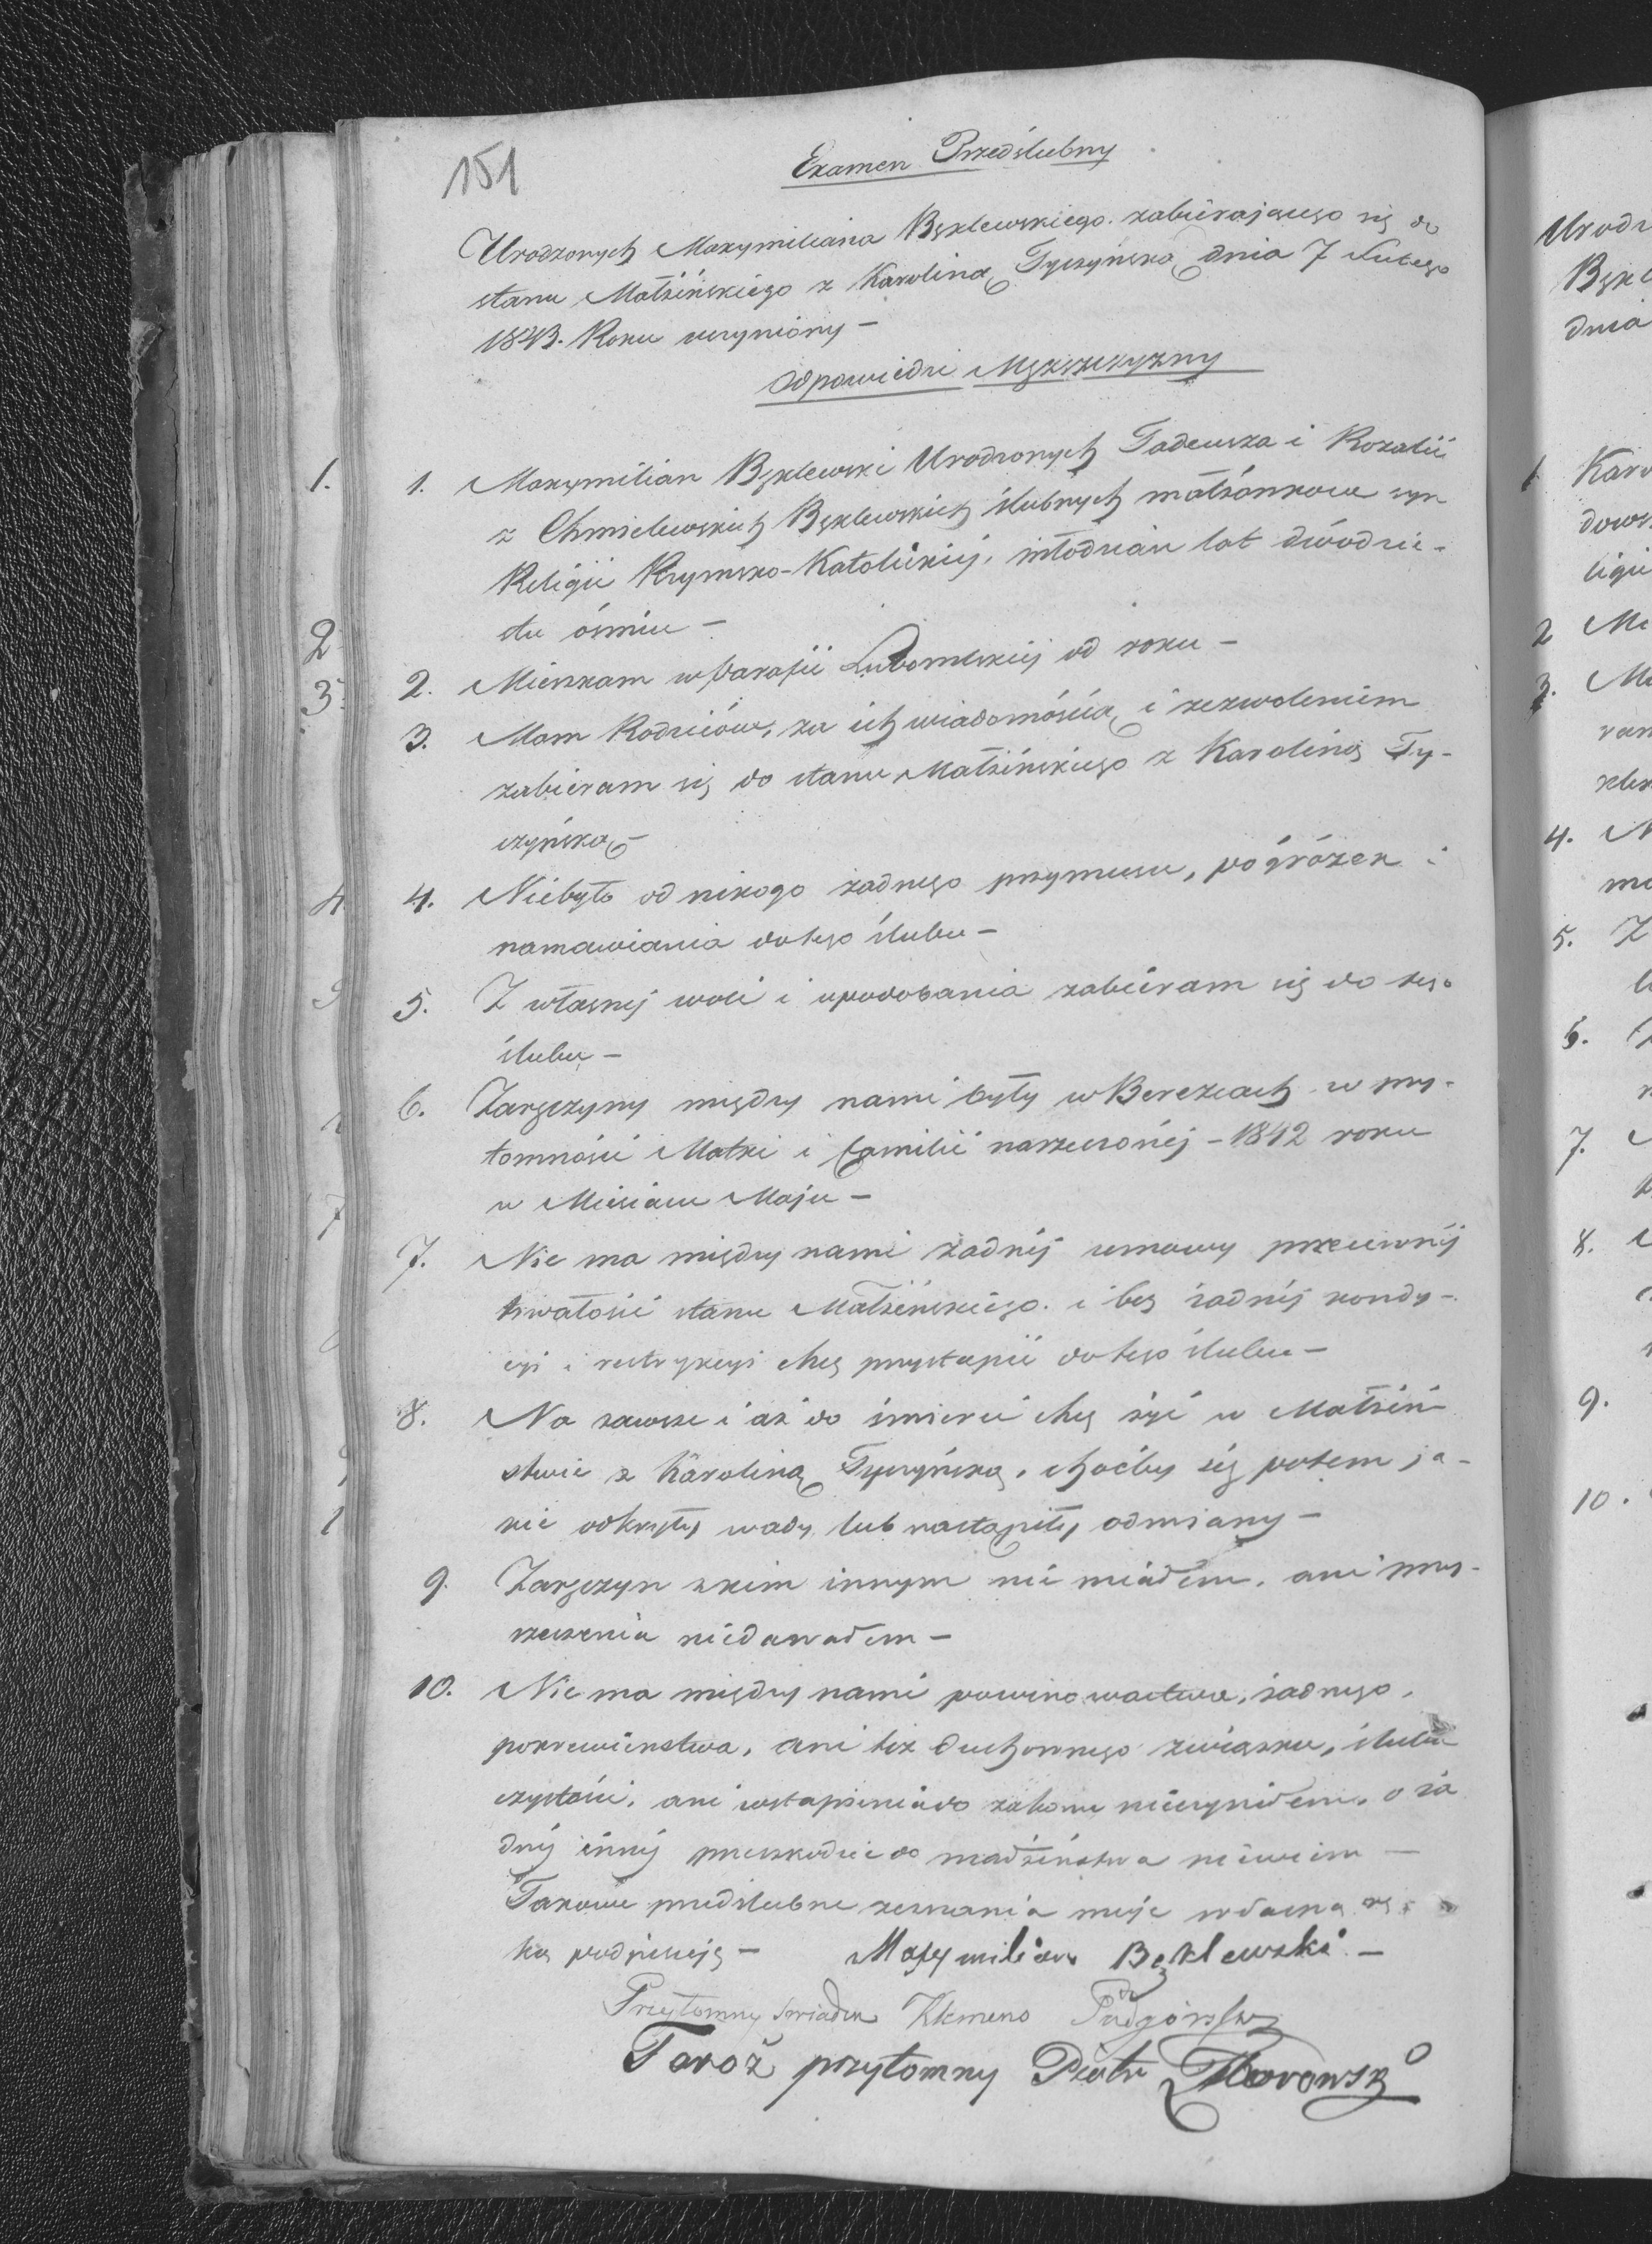 151
Examen Przedślubny
Urodzonych Maxymiliana Bęklewskiego zabierającego się do
stanu Małżeńskiego z Karoliną Tyczyńską dnia 7 Lutego
1843. Roku uczyniony —
Odpowiedzi Męzszczyzny
1. 1. Maxymilian Bęklewski Urodzonych Tadeusza i Rozalii
z Chmielewskich Bęklewskich ślubnych małżonków syn
Religii Rzymsko-Katolickiej, młodzian lat dwódzie-
stu ośmiu —
2 2. Mieszkam w Parafii Lubomlskiej od roku —
3. 3. Mam Rodziców, za ich wiadomością i zezwoleniem
zabieram się do stanu Małżeńskiego z Karoliną Ty-
czyńską —
4 4. Niebyło od nikogo żadnego przymusu, pogróżek i
namawiania do tego ślubu —
5. Z własnej woli i upodobania zabieram się do tego
ślubu —
6. Zaręczyny między nami były w Bereżcach w przy-
tomności Matki i familii narzeczonéj — 1842 roku
w Miesiącu Maju —
7 7. Nie ma między nami żadnéj umowy przeciwnéj
trwałości stanu Małżeńskiego. i bez żadnéj kondy-
cyi i restrykcyi chcę przystąpić do tego ślubu —
8. Na zawsze i aż do śmierci chcę żyć w Małżeń-
stwie z Karoliną Tyczyńską, choćby się potem ja-
kie odkryły wady lub nastąpiły odmiany —
9. Zaręczyn z kim innym nie miałem, ani przy-
rzeczenia niedawałem —
10. Nie ma między nami powinowactwa, żadnego,
pokrewieństwa, ani też duchownego związku, ślubu
czystości, ani wstąpienia do zakonu nieczyniłem, o ża
dnéj innéj przeszkodzie do małżeństwa niewiem —
Takowe przedślubne zeznania moje własną rę-
ką podpisuję — Maxymilian Bęklewski —
Przytomny świadek Klemens Podgórski
Taroż przytomny Piotr
Urodz
Bękl
dnia
1 Karo
dows
ligii
2 Mi
3. Ma
4. N
5. Z
6.
7.
8.
9.
10.